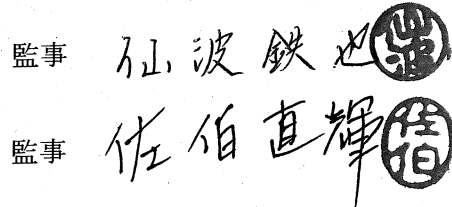 監事 仙波鉄也 仙波
監事 佐伯直輝 佐伯